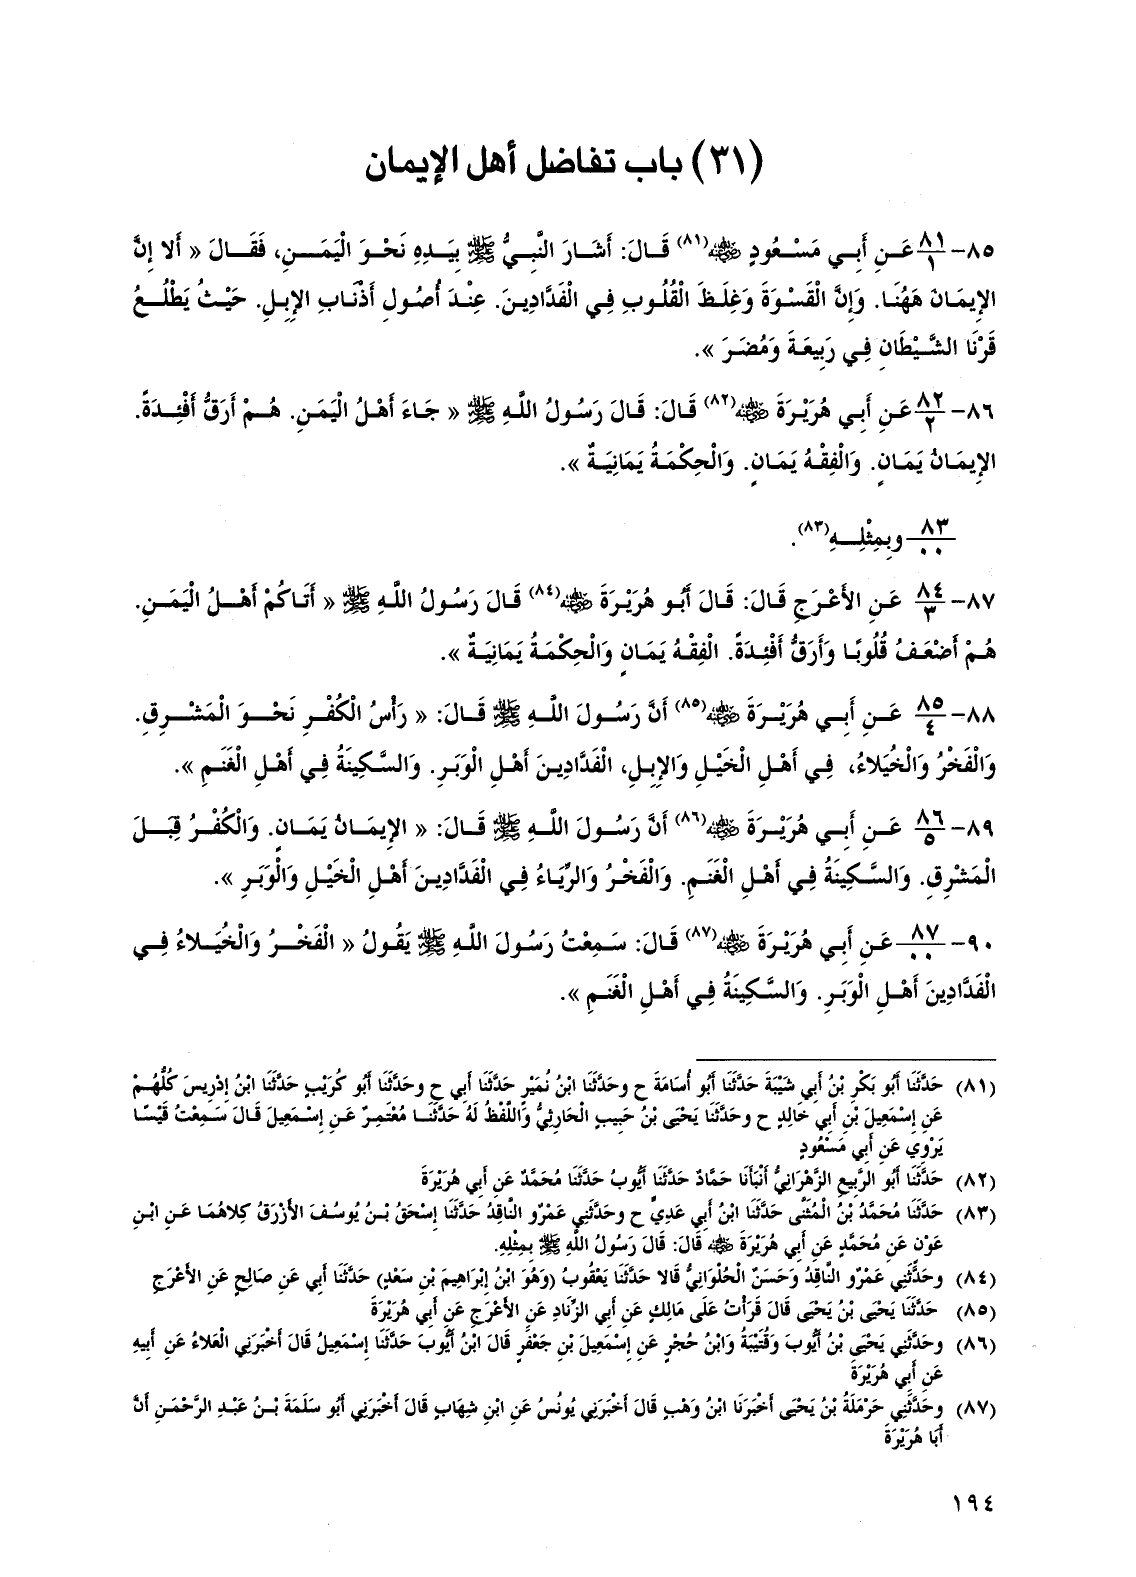 (٣١) باب تفاضل أهل الإيمان
٨٥- ٨١/١ عَنِ أَبِي مَسْعُودٍ ﷺ(٨١) قَالَ: أَشَارَ النَّبِيُّ ﷺ بِيَدِهِ نَحْوَ الْيَمَنِ، فَقَالَ « أَلا إِنَّ
الإِيمَانَ هَهُنَا. وَإِنَّ الْقَسْوَةَ وَغِلَظَ الْقُلُوبِ فِي الْفَدَّادِينَ. عِنْدَ أُصُولِ أَذْنَابِ الإِبِلِ. حَيْثُ يَطْلُعُ
قَرْنَا الشَّيْطَانِ فِي رَبِيعَةَ وَمُضَرَ ».
٨٦- ٨٢/٢ عَنِ أَبِي هُرَيْرَةَ ﷺ(٨٢) قَالَ: قَالَ رَسُولُ اللَّهِ ﷺ « جَاءَ أَهْلُ الْيَمَنِ. هُمْ أَرَقُّ أَفْئِدَةً.
الإِيمَانُ يَمَانٍ. وَالْفِقْهُ يَمَانٍ. وَالْحِكْمَةُ يَمَانِيَةٌ ».
٨٣/٠٠ وبِمِثْلِهِ(٨٣).
٨٧- ٨٤/٣ عَنِ الأَعْرَجِ قَالَ: قَالَ أَبُو هُرَيْرَةَ ﷺ(٨٤) قَالَ رَسُولُ اللَّهِ ﷺ « أَتَاكُمْ أَهْلُ الْيَمَنِ.
هُمْ أَضْعَفُ قُلُوبًا وَأَرَقُّ أَفْئِدَةً. الْفِقْهُ يَمَانٍ وَالْحِكْمَةُ يَمَانِيَةٌ ».
٨٨- ٨٥/٤ عَنِ أَبِي هُرَيْرَةَ ﷺ(٨٥) أَنَّ رَسُولَ اللَّهِ ﷺ قَالَ: « رَأْسُ الْكُفْرِ نَحْوَ الْمَشْرِقِ.
وَالْفَخْرُ وَالْخُيَلاءُ، فِي أَهْلِ الْخَيْلِ وَالإِبِلِ، الْفَدَّادِينَ أَهْلِ الْوَبَرِ. وَالسَّكِينَةُ فِي أَهْلِ الْغَنَمِ ».
٨٩- ٨٦/٥ عَنِ أَبِي هُرَيْرَةَ ﷺ(٨٦) أَنَّ رَسُولَ اللَّهِ ﷺ قَالَ: « الإِيمَانُ يَمَانٍ. وَالْكُفْرُ قِبَلَ
الْمَشْرِقِ. وَالسَّكِينَةُ فِي أَهْلِ الْغَنَمِ. وَالْفَخْرُ وَالرِّيَاءُ فِي الْفَدَّادِينَ أَهْلِ الْخَيْلِ وَالْوَبَرِ ».
٩٠- ٨٧/٠٠ عَنِ أَبِي هُرَيْرَةَ ﷺ(٨٧) قَالَ: سَمِعْتُ رَسُولَ اللَّهِ ﷺ يَقُولُ « الْفَخْرُ وَالْخُيَلاءُ فِي
الْفَدَّادِينَ أَهْلِ الْوَبَرِ. وَالسَّكِينَةُ فِي أَهْلِ الْغَنَمِ ».
(٨١) حَدَّثَنَا أَبُو بَكْرِ بْنُ أَبِي شَيْبَةَ حَدَّثَنَا أَبُو أُسَامَةَ ح وحَدَّثَنَا ابْنُ نُمَيْرٍ حَدَّثَنَا أَبِي ح وحَدَّثَنَا أَبُو كُرَيْبٍ حَدَّثَنَا ابْنُ إِدْرِيسَ كُلُّهُمْ
عَنِ إِسْمَعِيلَ بْنِ أَبِي خَالِدٍ ح وحَدَّثَنَا يَحْيَى بْنُ حَبِيبٍ الْحَارِثِيُّ وَاللَّفْظُ لَهُ حَدَّثَنَا مُعْتَمِرٌ عَنِ إِسْمَعِيلَ قَالَ سَمِعْتُ قَيْسًا
يَرْوِي عَنِ أَبِي مَسْعُودٍ
(٨٢) حَدَّثَنَا أَبُو الرَّبِيعِ الزَّهْرَانِيُّ أَنْبَأَنَا حَمَّادٌ حَدَّثَنَا أَيُّوبُ حَدَّثَنَا مُحَمَّدٌ عَنِ أَبِي هُرَيْرَةَ
(٨٣) حَدَّثَنَا مُحَمَّدُ بْنُ الْمُثَنَّى حَدَّثَنَا ابْنُ أَبِي عَدِيٍّ ح وحَدَّثَنِي عَمْرٌو النَّاقِدُ حَدَّثَنَا إِسْحَقُ بْنُ يُوسُفَ الأَزْرَقُ كِلاهُمَا عَنِ ابْنِ
عَوْنٍ عَنِ مُحَمَّدٍ عَنِ أَبِي هُرَيْرَةَ ﷺ قَالَ: قَالَ رَسُولُ اللَّهِ ﷺ بِمِثْلِهِ.
(٨٤) وحَدَّثَنِي عَمْرٌو النَّاقِدُ وَحَسَنٌ الْحُلْوَانِيُّ قَالا حَدَّثَنَا يَعْقُوبُ (وَهُوَ ابْنُ إِبْرَاهِيمَ بْنِ سَعْدٍ) حَدَّثَنَا أَبِي عَنِ صَالِحٍ عَنِ الأَعْرَجِ
(٨٥) حَدَّثَنَا يَحْيَى بْنُ يَحْيَى قَالَ قَرَأْتُ عَلَى مَالِكٍ عَنِ أَبِي الزِّنَادِ عَنِ الأَعْرَجِ عَنِ أَبِي هُرَيْرَةَ
(٨٦) وحَدَّثَنِي يَحْيَى بْنُ أَيُّوبَ وَقُتَيْبَةُ وَابْنُ حُجْرٍ عَنِ إِسْمَعِيلَ بْنِ جَعْفَرٍ قَالَ ابْنُ أَيُّوبَ حَدَّثَنَا إِسْمَعِيلُ قَالَ أَخْبَرَنِي الْعَلاءُ عَنِ أَبِيهِ
عَنِ أَبِي هُرَيْرَةَ
(٨٧) وحَدَّثَنِي حَرْمَلَةُ بْنُ يَحْيَى أَخْبَرَنَا ابْنُ وَهْبٍ قَالَ أَخْبَرَنِي يُونُسُ عَنِ ابْنِ شِهَابٍ قَالَ أَخْبَرَنِي أَبُو سَلَمَةَ بْنُ عَبْدِ الرَّحْمَنِ أَنَّ
أَبَا هُرَيْرَةَ
١٩٤